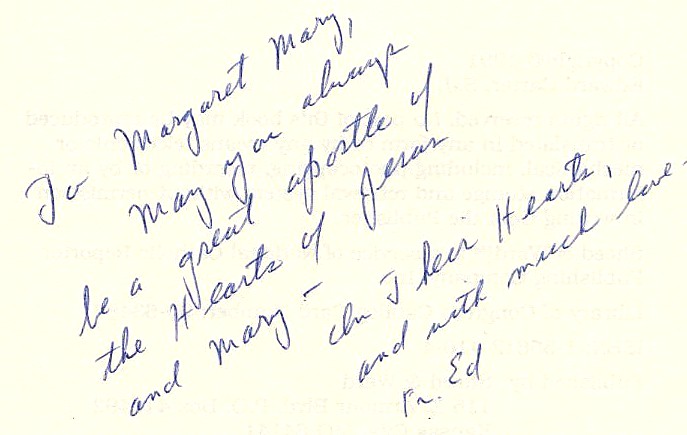 To Margaret Mary,
May you always
be a great apostle of
the Hearts of Jesus
and Mary – In Their Hearts,
and with much love –
Fr. Ed